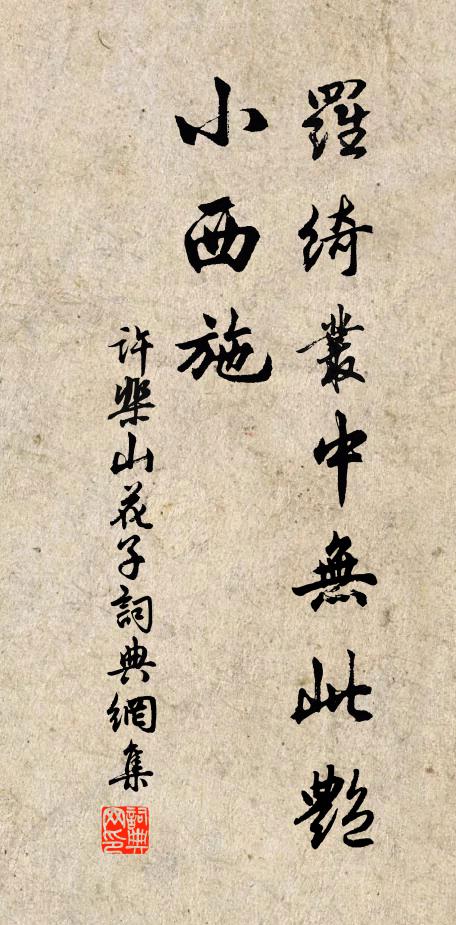 羅綺叢中無此艷
小西施
許棐山花子詞典網集
詞典
网印